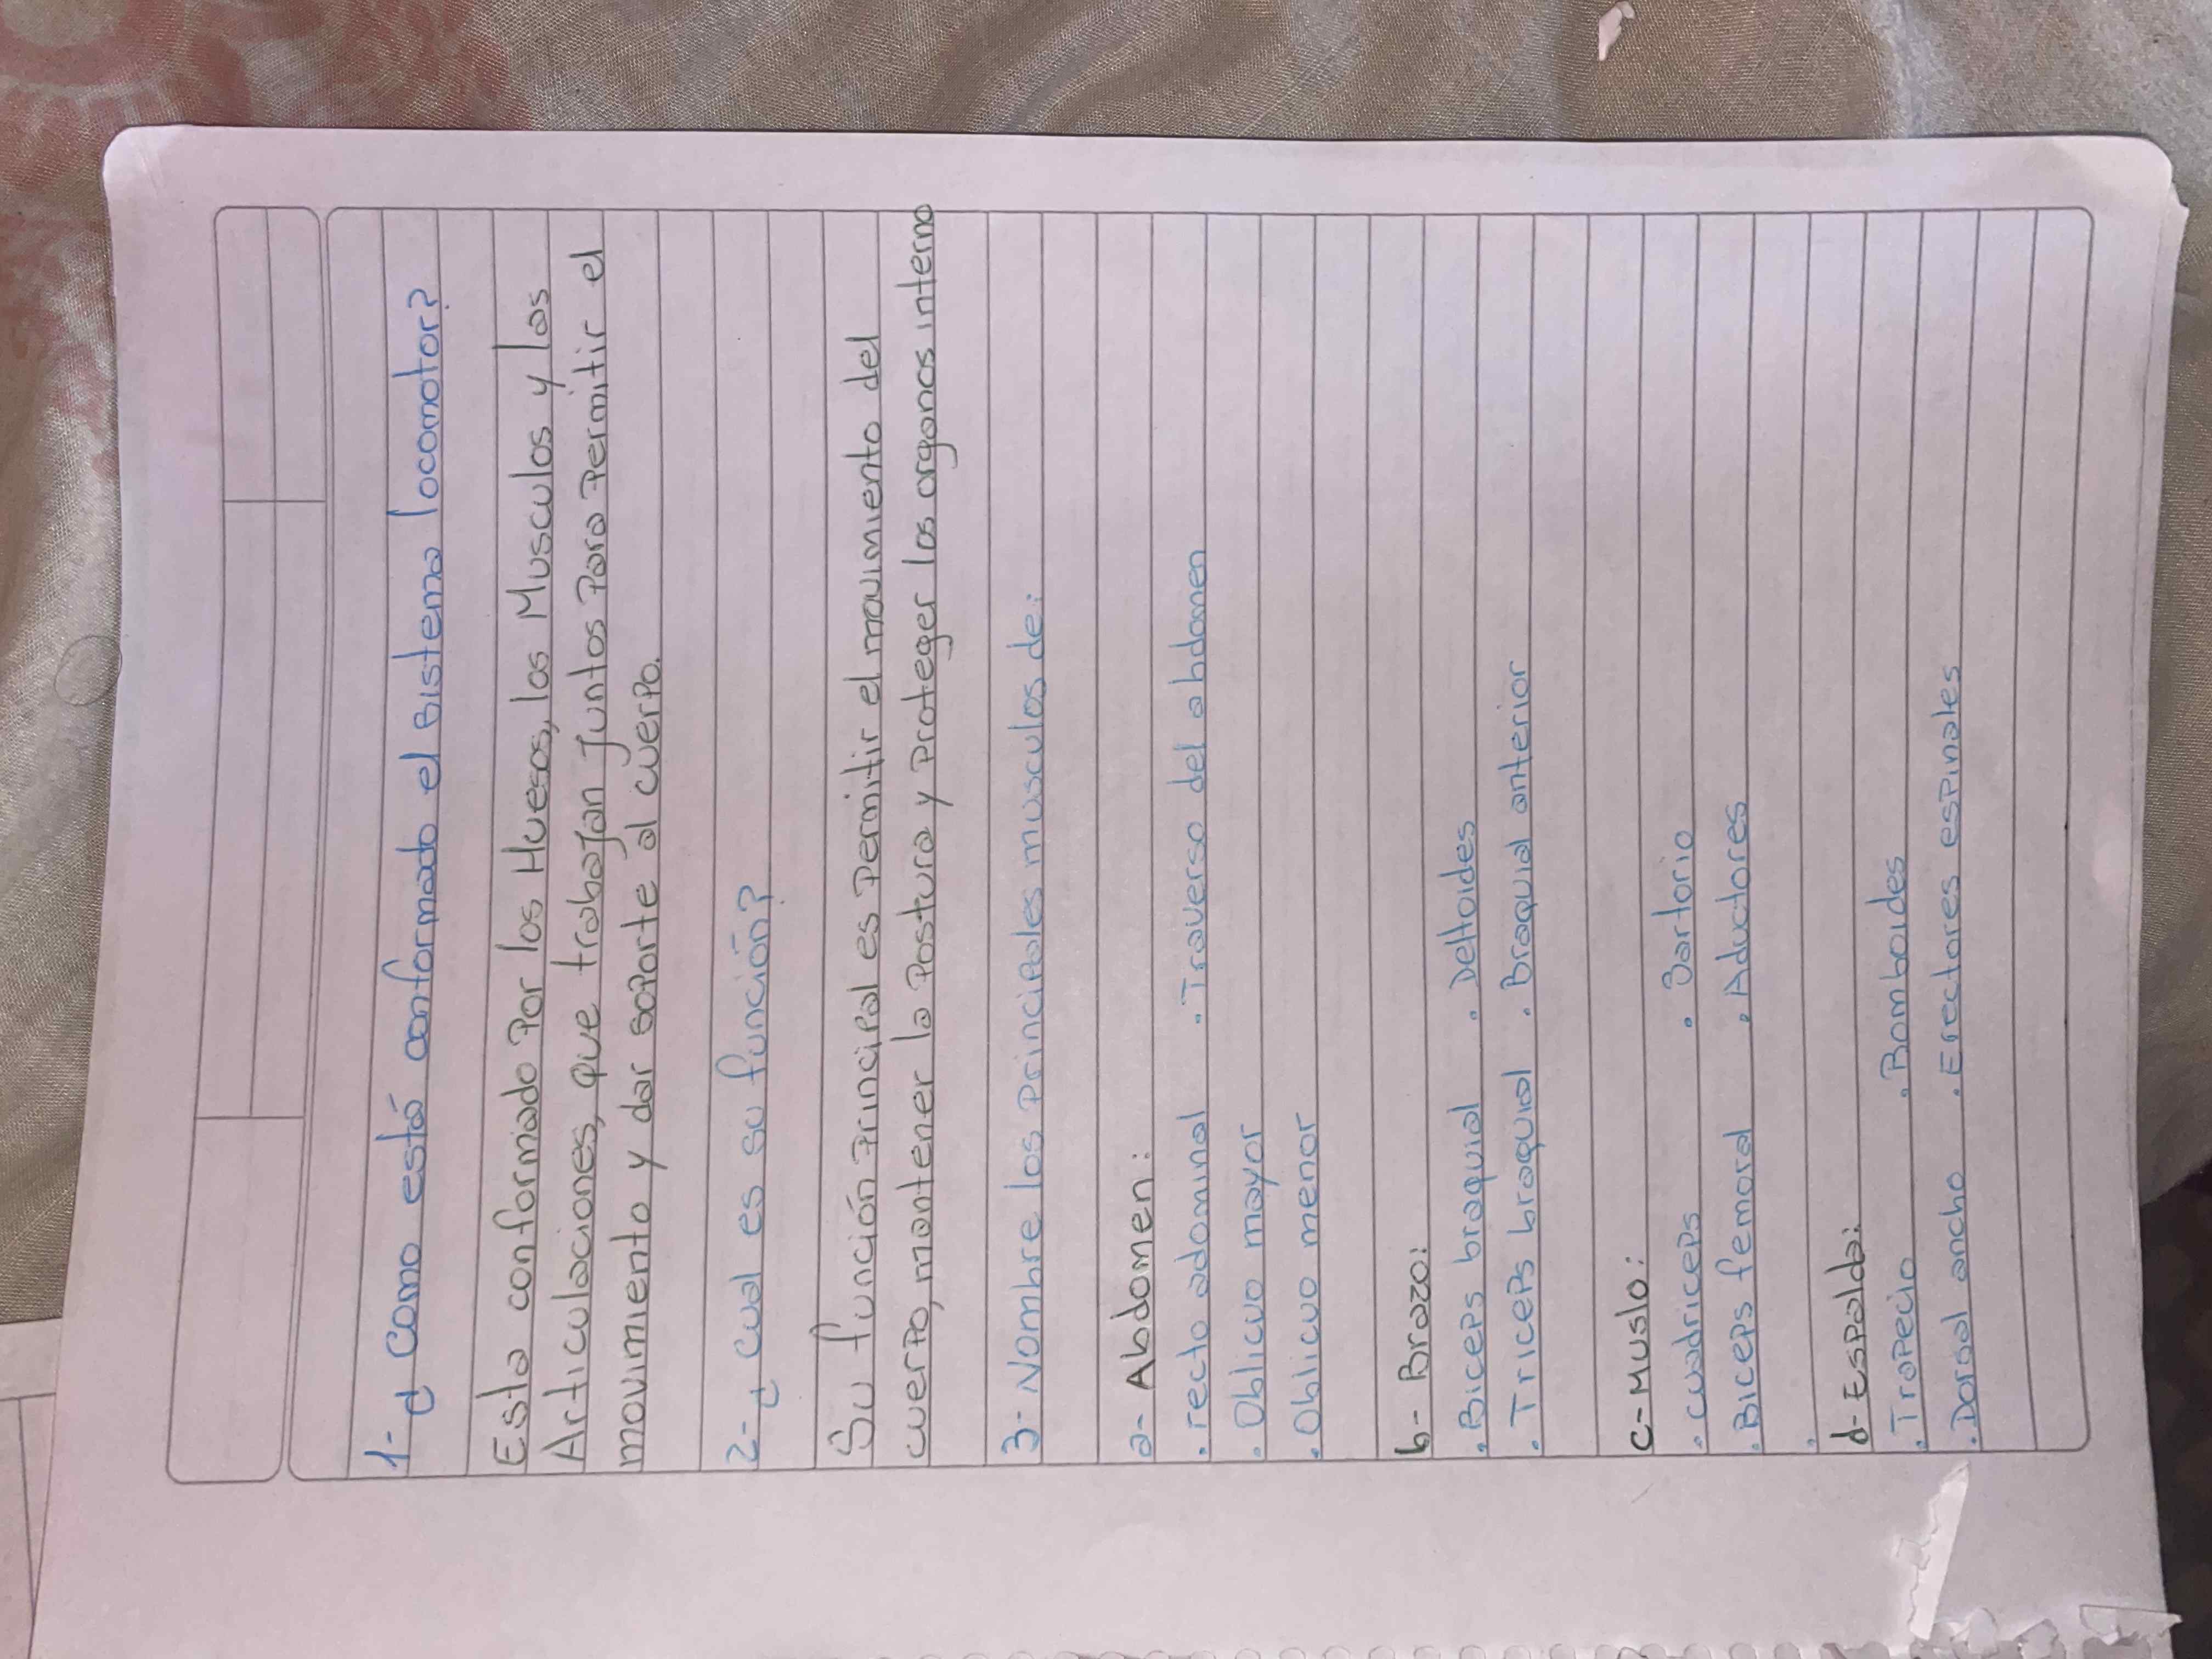 1- ¿ como está conformado el sistema locomotor?
Esta conformado Por los Huesos, los Musculos y las
Articulaciones, que trabajan juntos Para Permitir el
movimiento y dar soporte al cuerpo.
2- ¿ cual es su función?
Su función Principal es Permitir el movimiento del
cuerpo, mantener la Postura y Proteger los organos interno
3- Nombre los Principales musculos de:
a- Abdomen:
. recto adominal . Traverso del abdomen
. Oblicuo mayor
. Oblicuo menor
b- Brazo:
. Biceps braquial . Deltoides
. Triceps braquial . Braquial anterior
c- Muslo:
. cuadriceps . Sartorio
. Biceps femoral . Aductores
.
d- Espalda:
. Trapecio . Romboides
. Dorsal ancho . Erectores espinales